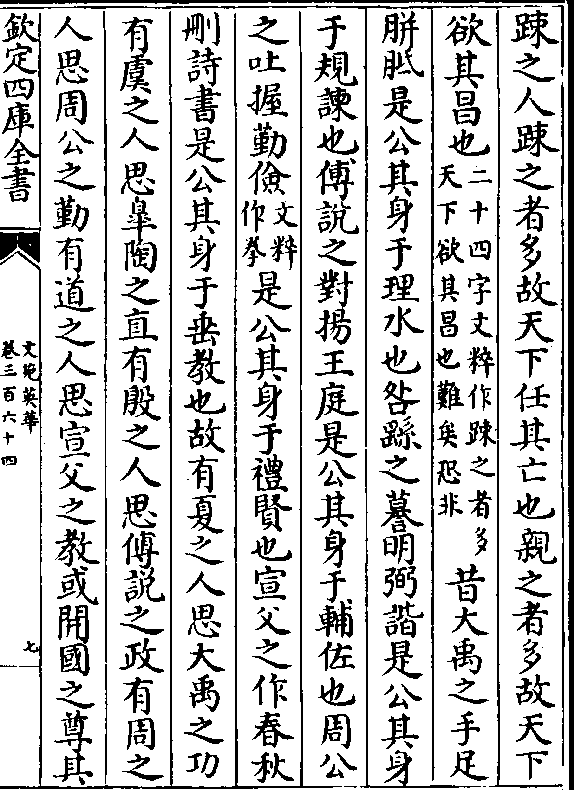 踈之人踈之者多故天下任其亡也親之者多故天下
欲其昌也二十四字文粹作踈之者多天下欲其昌也難矣恐非昔大禹之手足
胼胝是公其身于理水也咎繇之謩明弼諧是公其身
于規諫也傅說之對揚王庭是公其身于輔佐也周公
之吐握勤儉文粹作拳是公其身于禮賢也宣父之作春秋
刪詩書是公其身于垂教也故有夏之人思大禹之功
有虞之人思臯陶之直有殷之人思傅說之政有周之
人思周公之勤有道之人思宣父之教或開國之尊其
欽定四庫全書
文苑英華
卷三百六十四
七